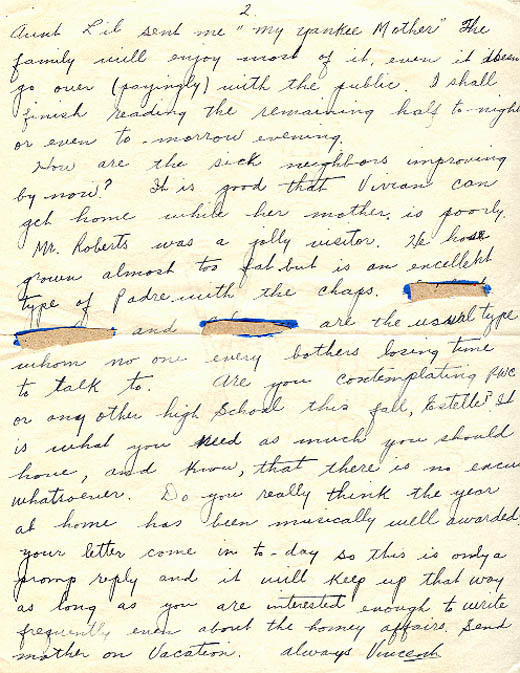 2
Aunt Lil sent me "my yankee Mother" The
family will enjoy most of it, even it doesn
go over (payingly) with the public. I shall
finish reading the remaining half to-night
or even to-morrow evening.
How are the sick neighbors improving
by-now? It is good that Vivian can
get home while her mother is poorly.
Mr. Roberts was a jolly visitor. He has
grown almost too fat but is an excellent
type of Padre with the chaps.
and are the usual type
whom no one every bothers losing time
to talk to. Are you contemplating PWC
or any other high School this fall, Estelle? It
is what you need as much you should
have, and know, that there is no excu
whatsoever. Do you really think the year
at home has been musically well awarded
your letter come in to-day so this is only a
promp reply and it will keep up that way
as long as you are interested enough to write
frequently even about the homey affairs. Send
mother on Vacation. always Vincent